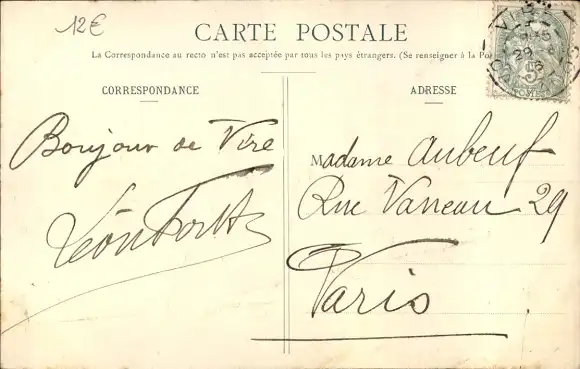 12€
CARTE POSTALE
La Correspondance au recto n'est pas acceptée par tous les pays étrangers. (Se renseigner à la Pos
CORRESPONDANCE
ADRESSE
Bonjour de Vire
Léon
Madame Aubeuf
Rue Vanneau 29
Paris
VIRE
29
5